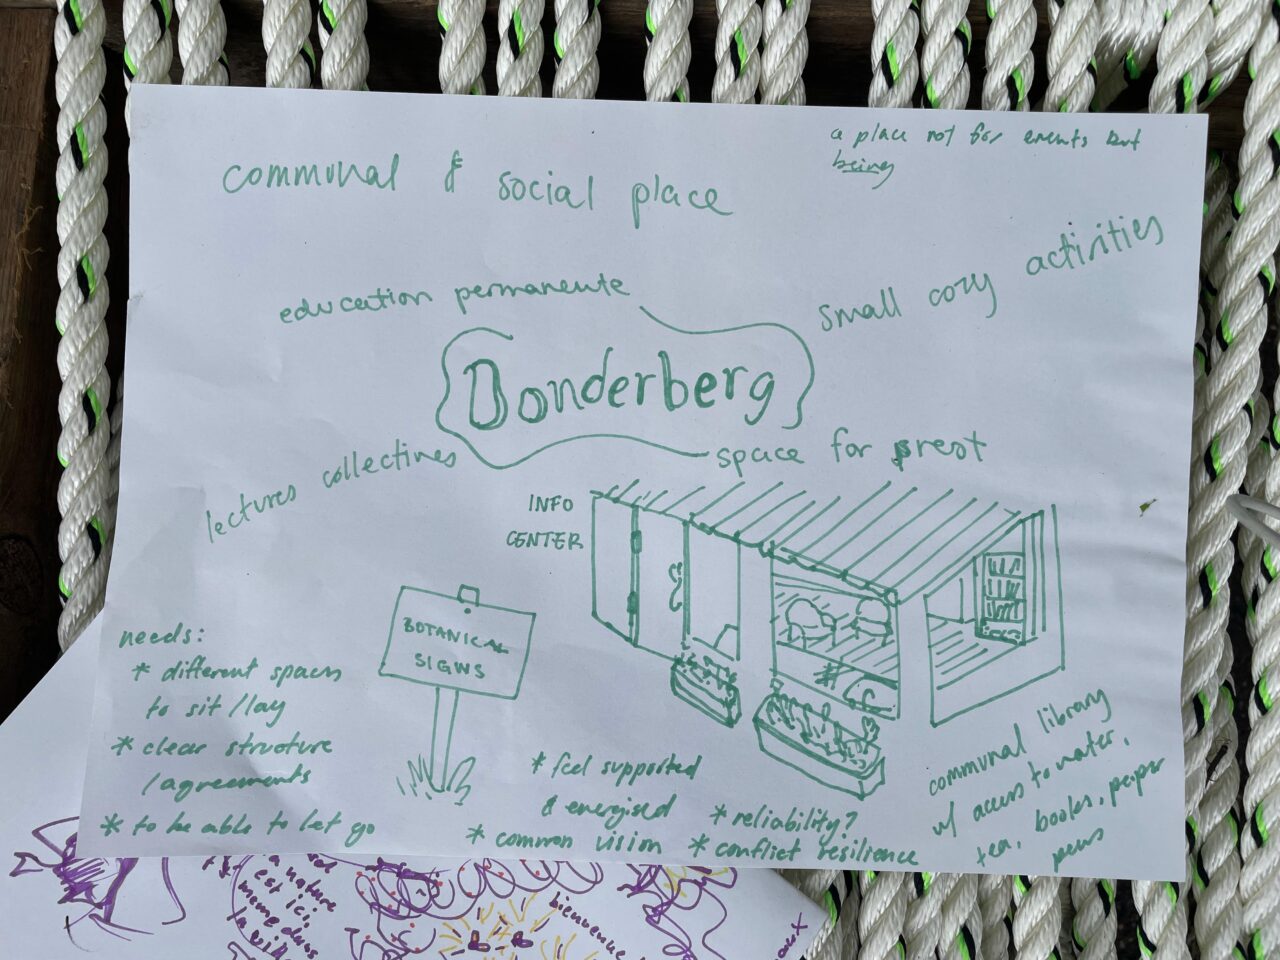 a place not for events but
being
communal & social place
small cozy activities
education permanente
Donderberg
space for rest
lectures collectives
INFO
CENTER
BOTANICAL
SIGNS
needs:
* different spaces
to sit / lay
* clear structure
/agreements
* to be able to let go
* feel supported
& energised
* common vision
* reliability?
* conflict resilience
communal library
w/ access to water,
tea, books, paper
pens
nature
est ici
même dans
la vill
bienvenue